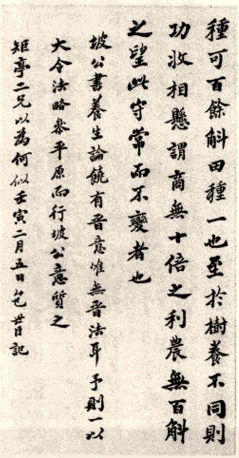 種可百餘斛田種一也至於樹養不同則
功收相懸謂商無十倍之利農無百斛
之望此守常而不變者也
坡公書養生論饒有晋意惟無晋法耳予則一以
大令法略參平原而行坡公意質之
矩亭二兄以為何似壬寅二月五日
記